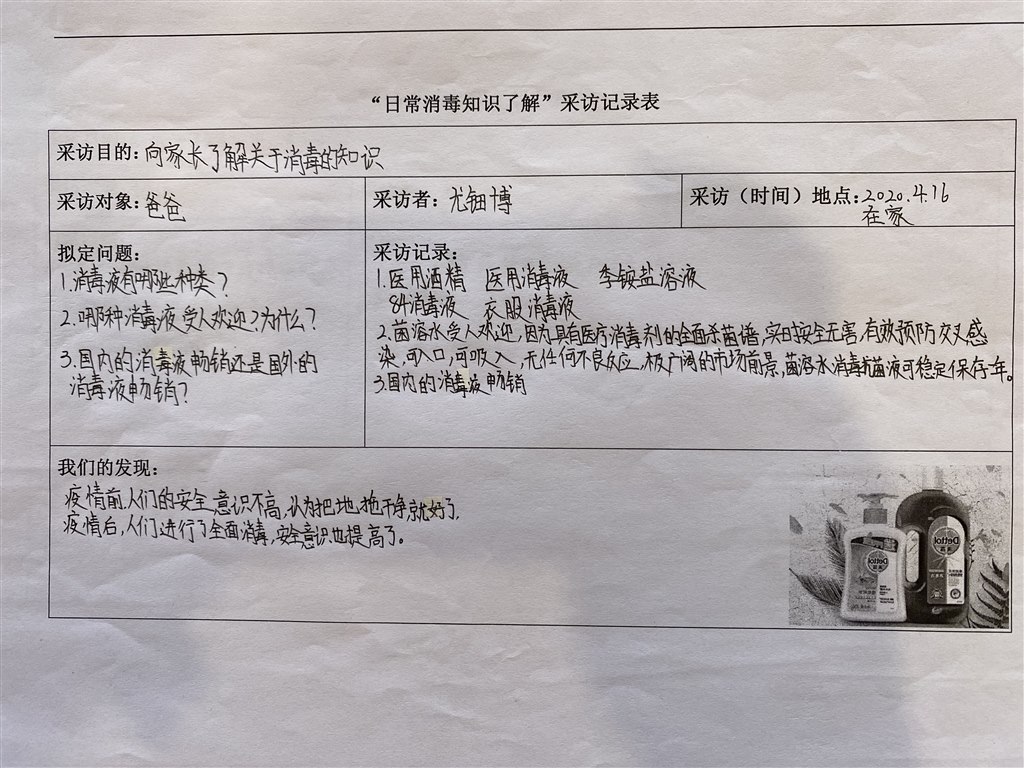 “日常消毒知识了解”采访记录表
采访目的：向家长了解关于消毒的知识
采访对象：爸爸
采访者：尤钿博
采访（时间）地点：2020.4.16
在家
拟定问题：
1.消毒液有哪些种类？
2.哪种消毒液受人欢迎？为什么？
3.国内的消毒液畅销还是国外的
消毒液畅销？
采访记录：
1.医用酒精 医用消毒液 季铵盐溶液
84消毒液 衣服消毒液
2.菌溶水受人欢迎，因为具有医疗消毒剂的全面杀菌谱，实时安全无害，有效预防交叉感
染，可入口，可吸入，无任何不良反应，极广阔的市场前景，菌溶水消毒抗菌液可稳定保存一年。
3.国内的消毒液畅销
我们的发现：
疫情前，人们的安全意识不高，认为把地拖干净就好了，
疫情后，人们进行了全面消毒，安全意识也提高了。
Dettol
Dettol